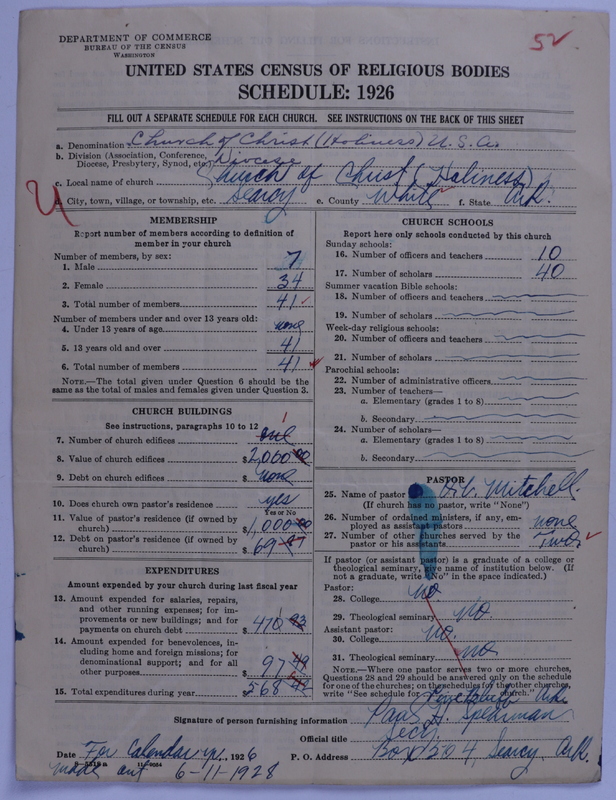 DEPARTMENT OF COMMERCE
BUREAU OF THE CENSUS
WASHINGTON
52
UNITED STATES CENSUS OF RELIGIOUS BODIES
SCHEDULE: 1926
FILL OUT A SEPARATE SCHEDULE FOR EACH CHURCH. SEE INSTRUCTIONS ON THE BACK OF THIS SHEET
a. Denomination Church of Christ (Holiness) U.S.A.
b. Division (Association, Conference, Diocese, Presbytery, Synod, etc.) Diocese
c. Local name of church Church of Christ (Holiness)
d. City, town, village, or township, etc. Searcy e. County White f. State Ark.
MEMBERSHIP
Report number of members according to definition of member in your church
Number of members, by sex:
1. Male 7
2. Female 34
3. Total number of members 41
Number of members under and over 13 years old:
4. Under 13 years of age none
5. 13 years old and over 41
6. Total number of members 41
NOTE.—The total given under Question 6 should be the same as the total of males and females given under Question 3.
CHURCH BUILDINGS
See instructions, paragraphs 10 to 12
7. Number of church edifices one 1
8. Value of church edifices $2,000 00
9. Debt on church edifices $ none
10. Does church own pastor's residence yes
Yes or No
11. Value of pastor's residence (if owned by church) $1,000 00
12. Debt on pastor's residence (if owned by church) $ 69
EXPENDITURES
Amount expended by your church during last fiscal year
13. Amount expended for salaries, repairs, and other running expenses; for improvements or new buildings; and for payments on church debt $ 470
14. Amount expended for benevolences, including home and foreign missions; for denominational support; and for all other purposes $ 97 49
15. Total expenditures during year $ 568
CHURCH SCHOOLS
Report here only schools conducted by this church
Sunday schools:
16. Number of officers and teachers 10
17. Number of scholars 40
Summer vacation Bible schools:
18. Number of officers and teachers
19. Number of scholars
Week-day religious schools:
20. Number of officers and teachers
21. Number of scholars
Parochial schools:
22. Number of administrative officers
23. Number of teachers—
a. Elementary (grades 1 to 8)
b. Secondary
24. Number of scholars—
a. Elementary (grades 1 to 8)
b. Secondary
PASTOR
25. Name of pastor Mitchell.
(If church has no pastor, write "None")
26. Number of ordained ministers, if any, employed as assistant pastors none
27. Number of other churches served by the pastor or his assistants Two
If pastor (or assistant pastor) is a graduate of a college or theological seminary, give name of institution below. (If not a graduate, write "No" in the space indicated.)
Pastor:
28. College no
29. Theological seminary no.
Assistant pastor:
30. College no.
31. Theological seminary no
NOTE.—Where one pastor serves two or more churches, Questions 28 and 29 should be answered only on the schedule for one of the churches; on the schedules for the other churches, write "See schedule for church."
Ark.
Signature of person furnishing information Paul H. Spearman
Official title Secy.
Date For Calendar yr. 1926 P. O. Address Box 1504, Searcy, Ark.
made out 6-11-1928